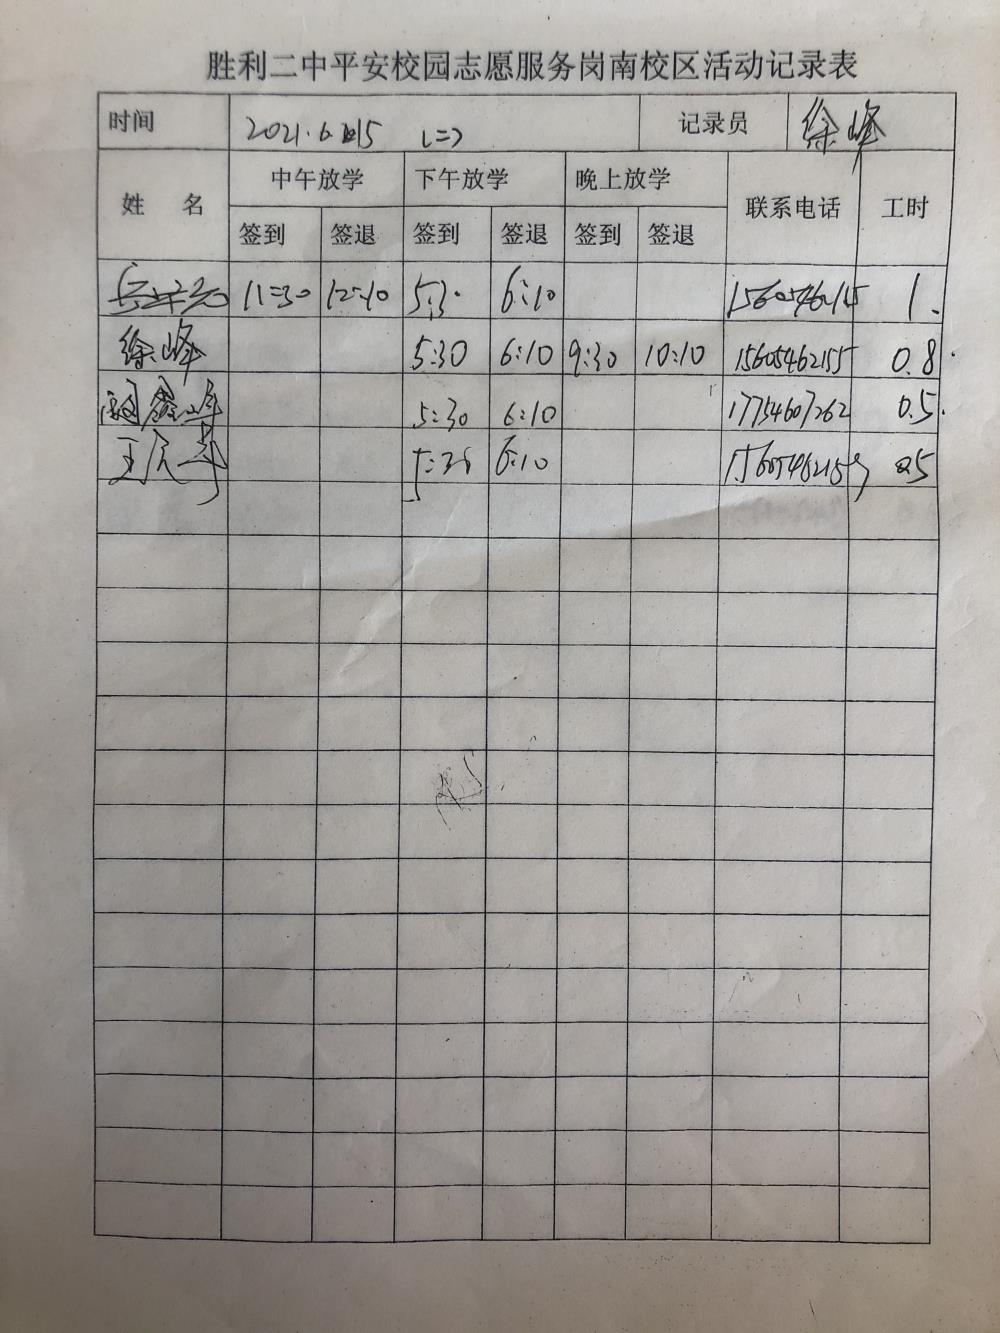 胜利二中平安校园志愿服务岗南校区活动记录表
时间 2021.6.15 (二) 记录员 徐峰
姓 名 中午放学 下午放学 晚上放学 联系电话 工时
签到 签退 签到 签退 签到 签退
11:30 12:10 5:30 6:10 1.
徐峰 5:30 6:10 9:30 10:10 15605462155 0.8
5:30 6:10 17754607262 0.5.
6:10 15605462159 0.5